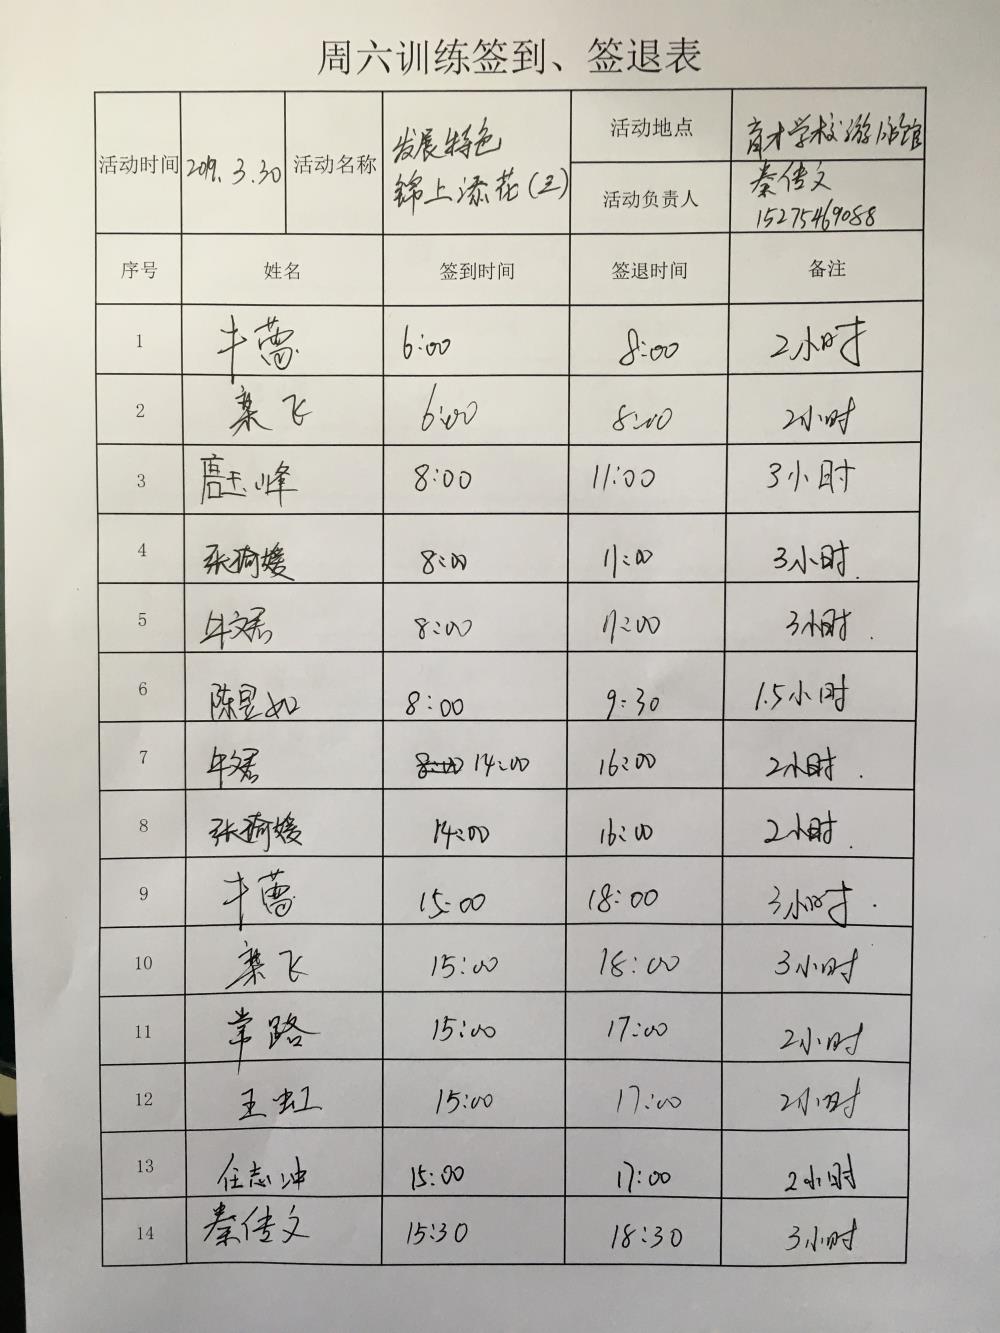 周六训练签到、签退表
活动时间 2019.3.30 活动名称 发展特色 活动地点 育才学校游泳馆
锦上添花(三) 活动负责人 秦传文
15275469088
序号 姓名 签到时间 签退时间 备注
1 牛蕾 6:00 8:00 2小时
2 桑飞 6:00 8:00 2小时
3 高玉峰 8:00 11:00 3小时
4 张琦媛 8:00 11:00 3小时.
5 牛文君 8:00 11:00 3小时.
6 陈昱如 8:00 9:30 1.5小时
7 牛文君 8:00 14:00 16:00 2小时.
8 张琦媛 14:00 16:00 2小时.
9 牛蕾 15:00 18:00 3小时.
10 桑飞 15:00 18:00 3小时
11 常路 15:00 17:00 2小时
12 王虹 15:00 17:00 2小时
13 任志冲 15:00 17:00 2小时
14 秦传文 15:30 18:30 3小时